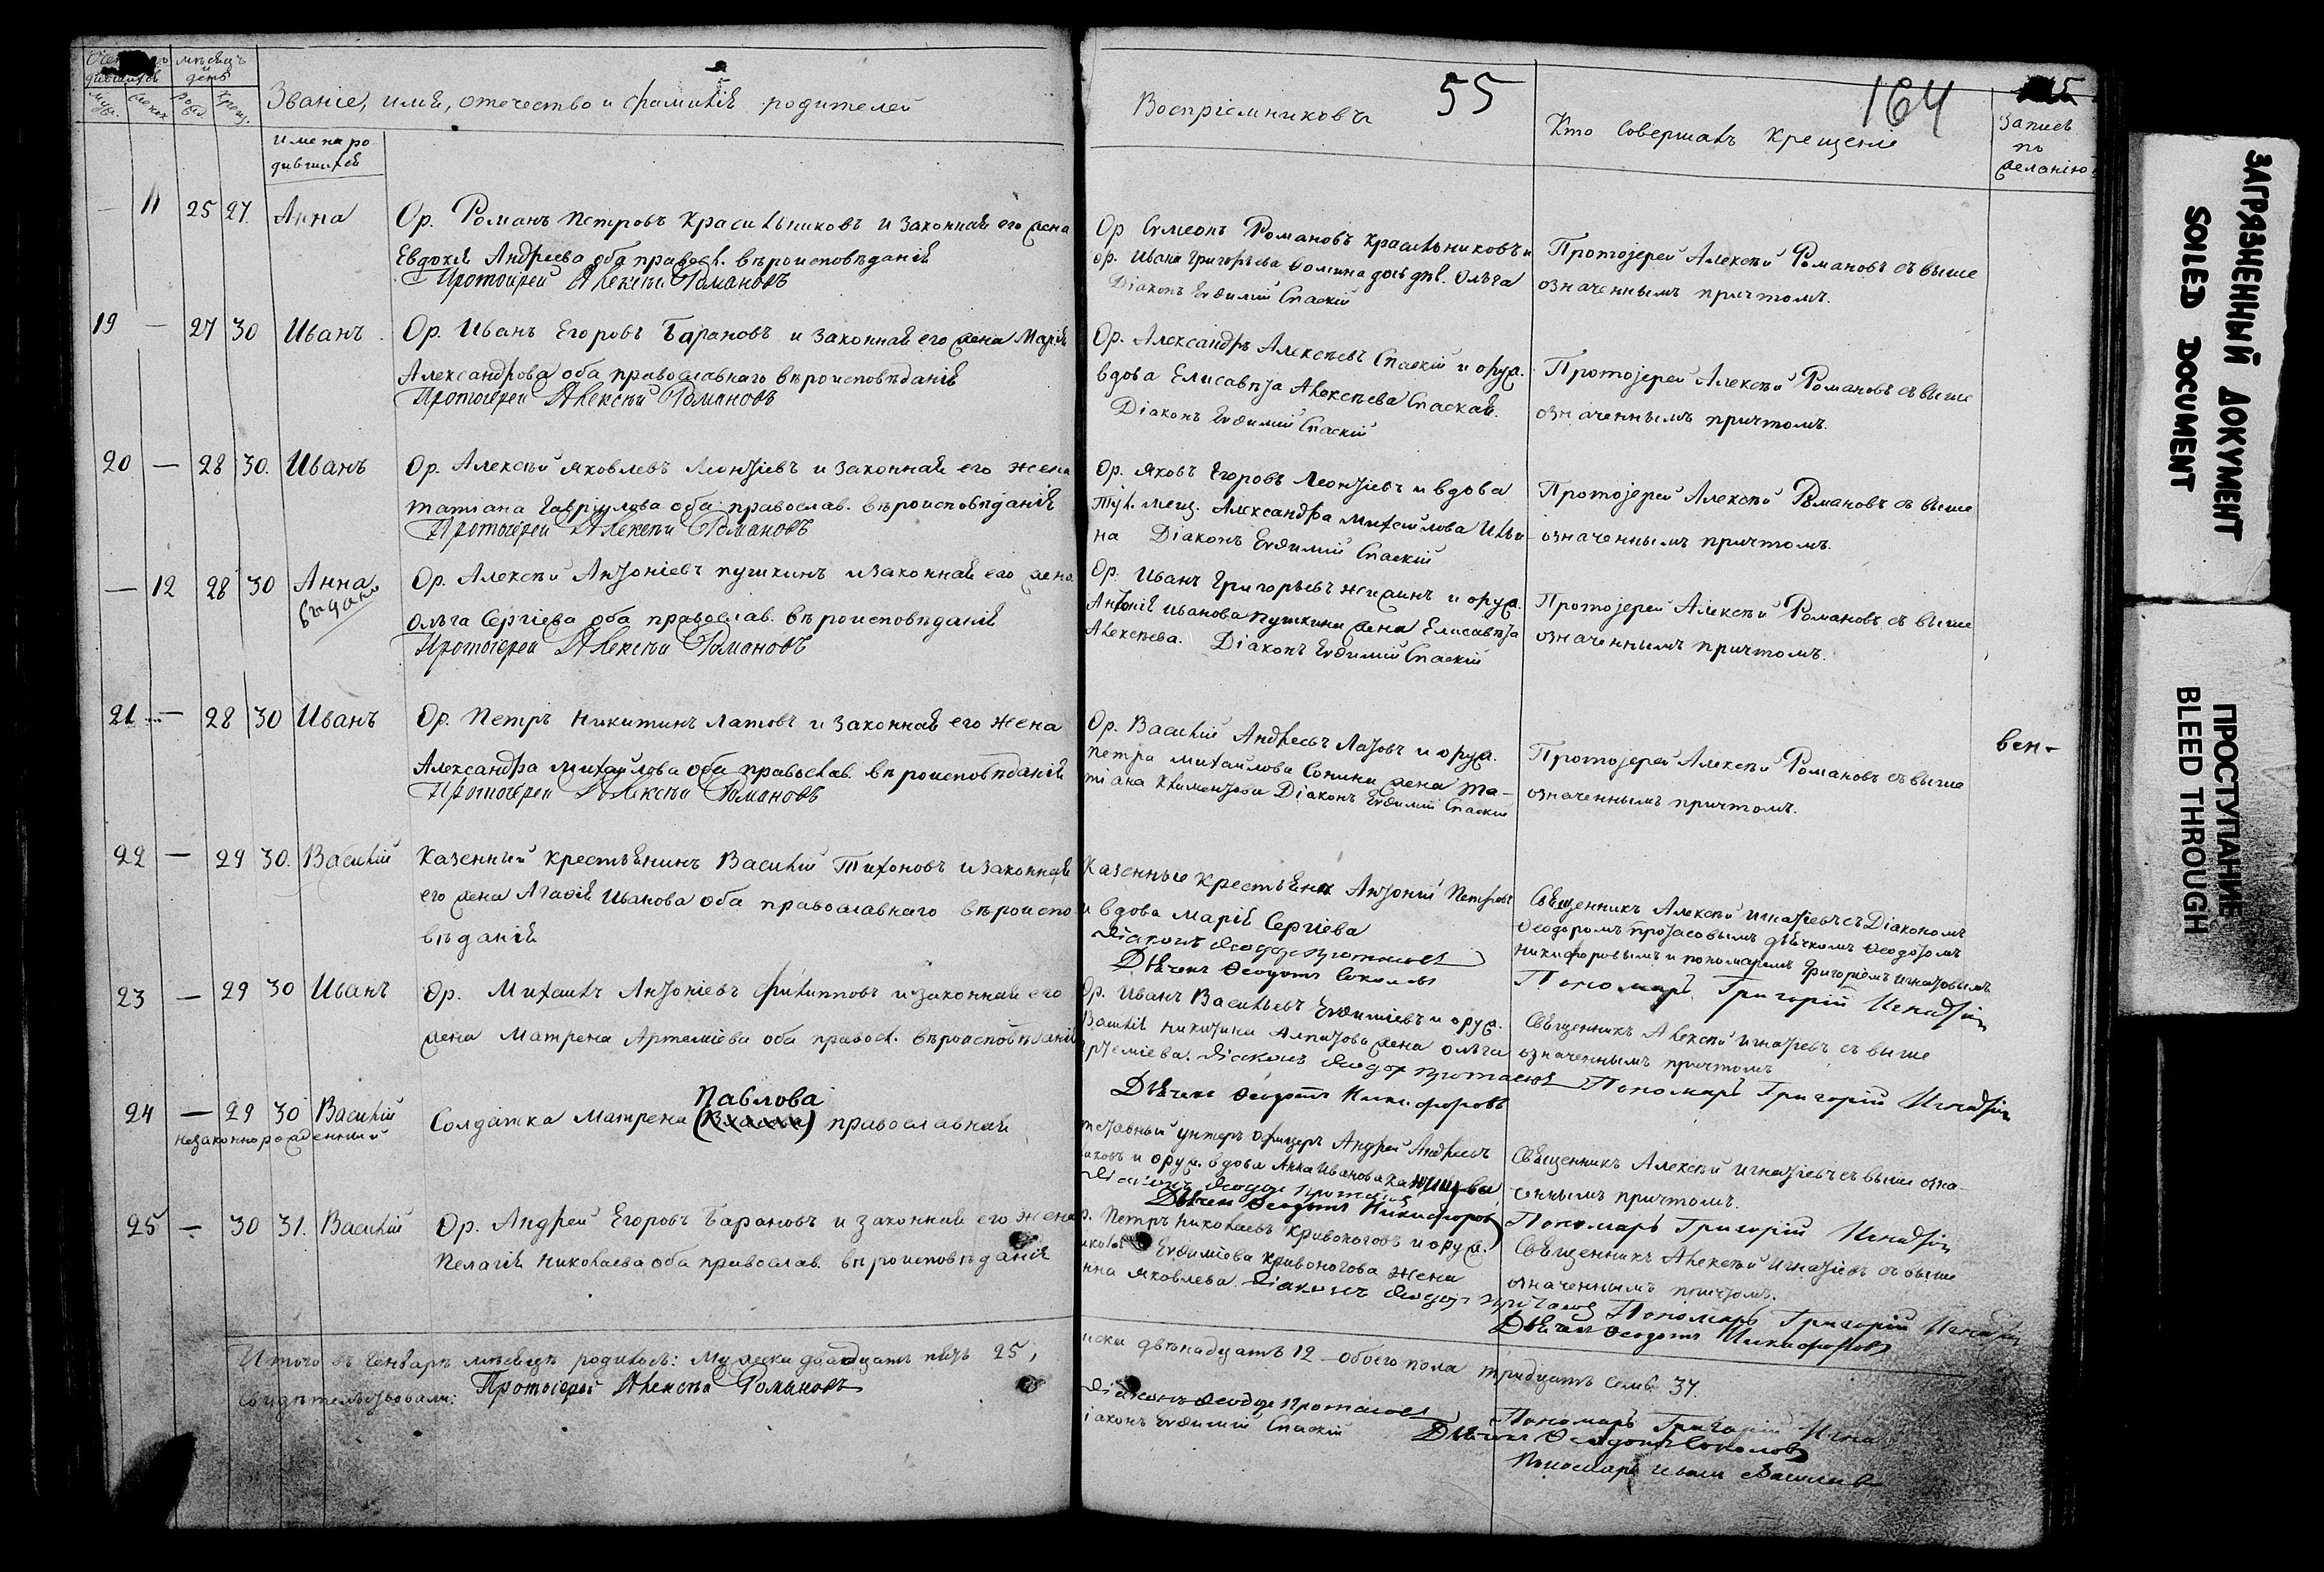 Званіе, имя, отечество и фамилія родителей
мѣсяцъ
и
день
имя наро
дившихся
11 25 27. Анна Ор. Романъ Петровъ Красильниковъ и законная его жена
Евдокія Андреева оба правосл. вѣроисповѣданія
Протоіерей Алексѣй Романовъ
19 — 27 30 Иванъ Ор. Иванъ Егоровъ Барановъ и законная его жена Марія
Александрова оба православнаго вѣроисповѣданія
Протоіерей Алексѣй Романовъ
20 — 28 30. Иванъ Ор. Алексѣй Яковлевъ Леонтіевъ и законная его жена
Татіана Гавріилова оба православ. вѣроисповѣданія
Протоіерей Алексѣй Романовъ
— 12 28 30 Анна Ор. Алексѣй Антоніевъ Пушкинъ и законная его жена
Ольга Сергіева оба православ. вѣроисповѣданія
Протоіерей Алексѣй Романовъ
21 — 28 30 Иванъ Ор. Петръ Никитинъ Латовъ и законная его жена
Александра Михайлова оба православ. вѣроисповѣданія
Протоіерей Алексѣй Романовъ
22 — 29 30. Василій Казенный крестьянинъ Василій Тихоновъ и законная
его жена Агафія Иванова оба православнаго вѣроиспо
вѣданія
23 — 29 30 Иванъ Ор. Михаилъ Антоніевъ Филипповъ и законная его
жена Матрена Артеміева оба правосл. вѣроисповѣданія
Павлова
24 — 29 30 Василій Солдатка Матрена православная
незаконнорожденный
25 — 30 31. Василій Ор. Андрей Егоровъ Барановъ и законная его жена
Пелагія Николаева оба православ. вѣроисповѣданія
Итого въ Генварѣ мѣсяцѣ родилось: Мужеска двадцать пять 25,
Свидѣтельствовали: Протоіерей Алексѣй Романовъ
Воспріемниковъ
55
Кто совершалъ крещеніе
164
Запись
по
желанію
Ор Симеонъ Романовъ Красильниковъ и
ор. Ивана Григорьева Фомина дочь дѣв. Ольга
Діаконъ Евѳимій Спаскій
Протоіерей Алексѣй Романовъ съ выше
означеннымъ причтомъ.
Ор. Александръ Алексѣевъ Спаскій и оруж.
вдова Елисавета Алексѣева Спаская.
Діаконъ Евѳимій Спаскій
Протоіерей Алексѣй Романовъ съ выше
означеннымъ причтомъ.
Ор. Яковъ Егоровъ Леонтіевъ и вдова
Тул. мещ. Александра Михайлова Ильи
на Діаконъ Евѳимій Спаскій
Протоіерей Алексѣй Романовъ съ выше
означеннымъ причтомъ.
Ор. Иванъ Григорьевъ и оруж.
Антонія Иванова Пушкина жена Елисавета
Алексѣева. Діаконъ Евѳимій Спаскій
Протоіерей Алексѣй Романовъ съ выше
означеннымъ причтомъ.
Ор. Василій Андреевъ Латовъ и оруж.
Петра Михайлова Сонина жена Та-
тіана Климентова Діаконъ Евѳимій Спаскій
Протоіерей Алексѣй Романовъ съ выше
означеннымъ причтомъ.
вен-
Казенные крестьяне Антоній Петровъ
и вдова Марія Сергіева
Діаконъ Ѳеодоръ Протасовъ
Дьячекъ Ѳеодотъ Соколовъ
Священникъ Алексѣй Игнатіевъ съ Діакономъ
Ѳеодоромъ Протасовымъ дьячкомъ Ѳеодотомъ
Никифоровымъ и пономаремъ Григоріемъ Игнатовымъ
Пономарь Григорій
Ор. Иванъ Васильевъ Евѳиміевъ и оруж.
Василія Никитина Алпатова жена Ольга
Артеміева. Діаконъ Ѳеодоръ Протасовъ
Дьячекъ Ѳеодотъ Никифоровъ
Священникъ Алексѣй Игнатіевъ съ выше
означеннымъ причтомъ
Пономарь Григорій
отставный унтеръ офицеръ Андрей Андреевъ
и оруж. вдова Анна Иванова
Діаконъ Ѳеодоръ Протасовъ
Дьячекъ Ѳеодотъ Никифоровъ
Священникъ Алексѣй Игнатіевъ съ выше озна-
ченнымъ причтомъ.
Пономарь Григорій
Ор. Петръ Николаевъ Кривоноговъ и оруж.
Евѳиміева Кривоногова жена
Анна Яковлева. Діаконъ Ѳеодоръ Протасовъ
Священникъ Алексѣй Игнатіевъ съ выше
означеннымъ причтомъ.
Пономарь Григорій
Дьячекъ Ѳеодотъ Никифоровъ
двѣнадцать 12 обоего пола тридцать семь 37.
Діаконъ Ѳеодоръ Протасовъ
Діаконъ Евѳимій Спаскій
Пономарь Григорій
Дьячекъ Ѳеодотъ Соколовъ
Пономарь Иванъ Васильевъ
ЗАГРЯЗНЕННЫЙ ДОКУМЕНТ
SOILED DOCUMENT
ПРОСТУПАНИЕ
BLEED THROUGH